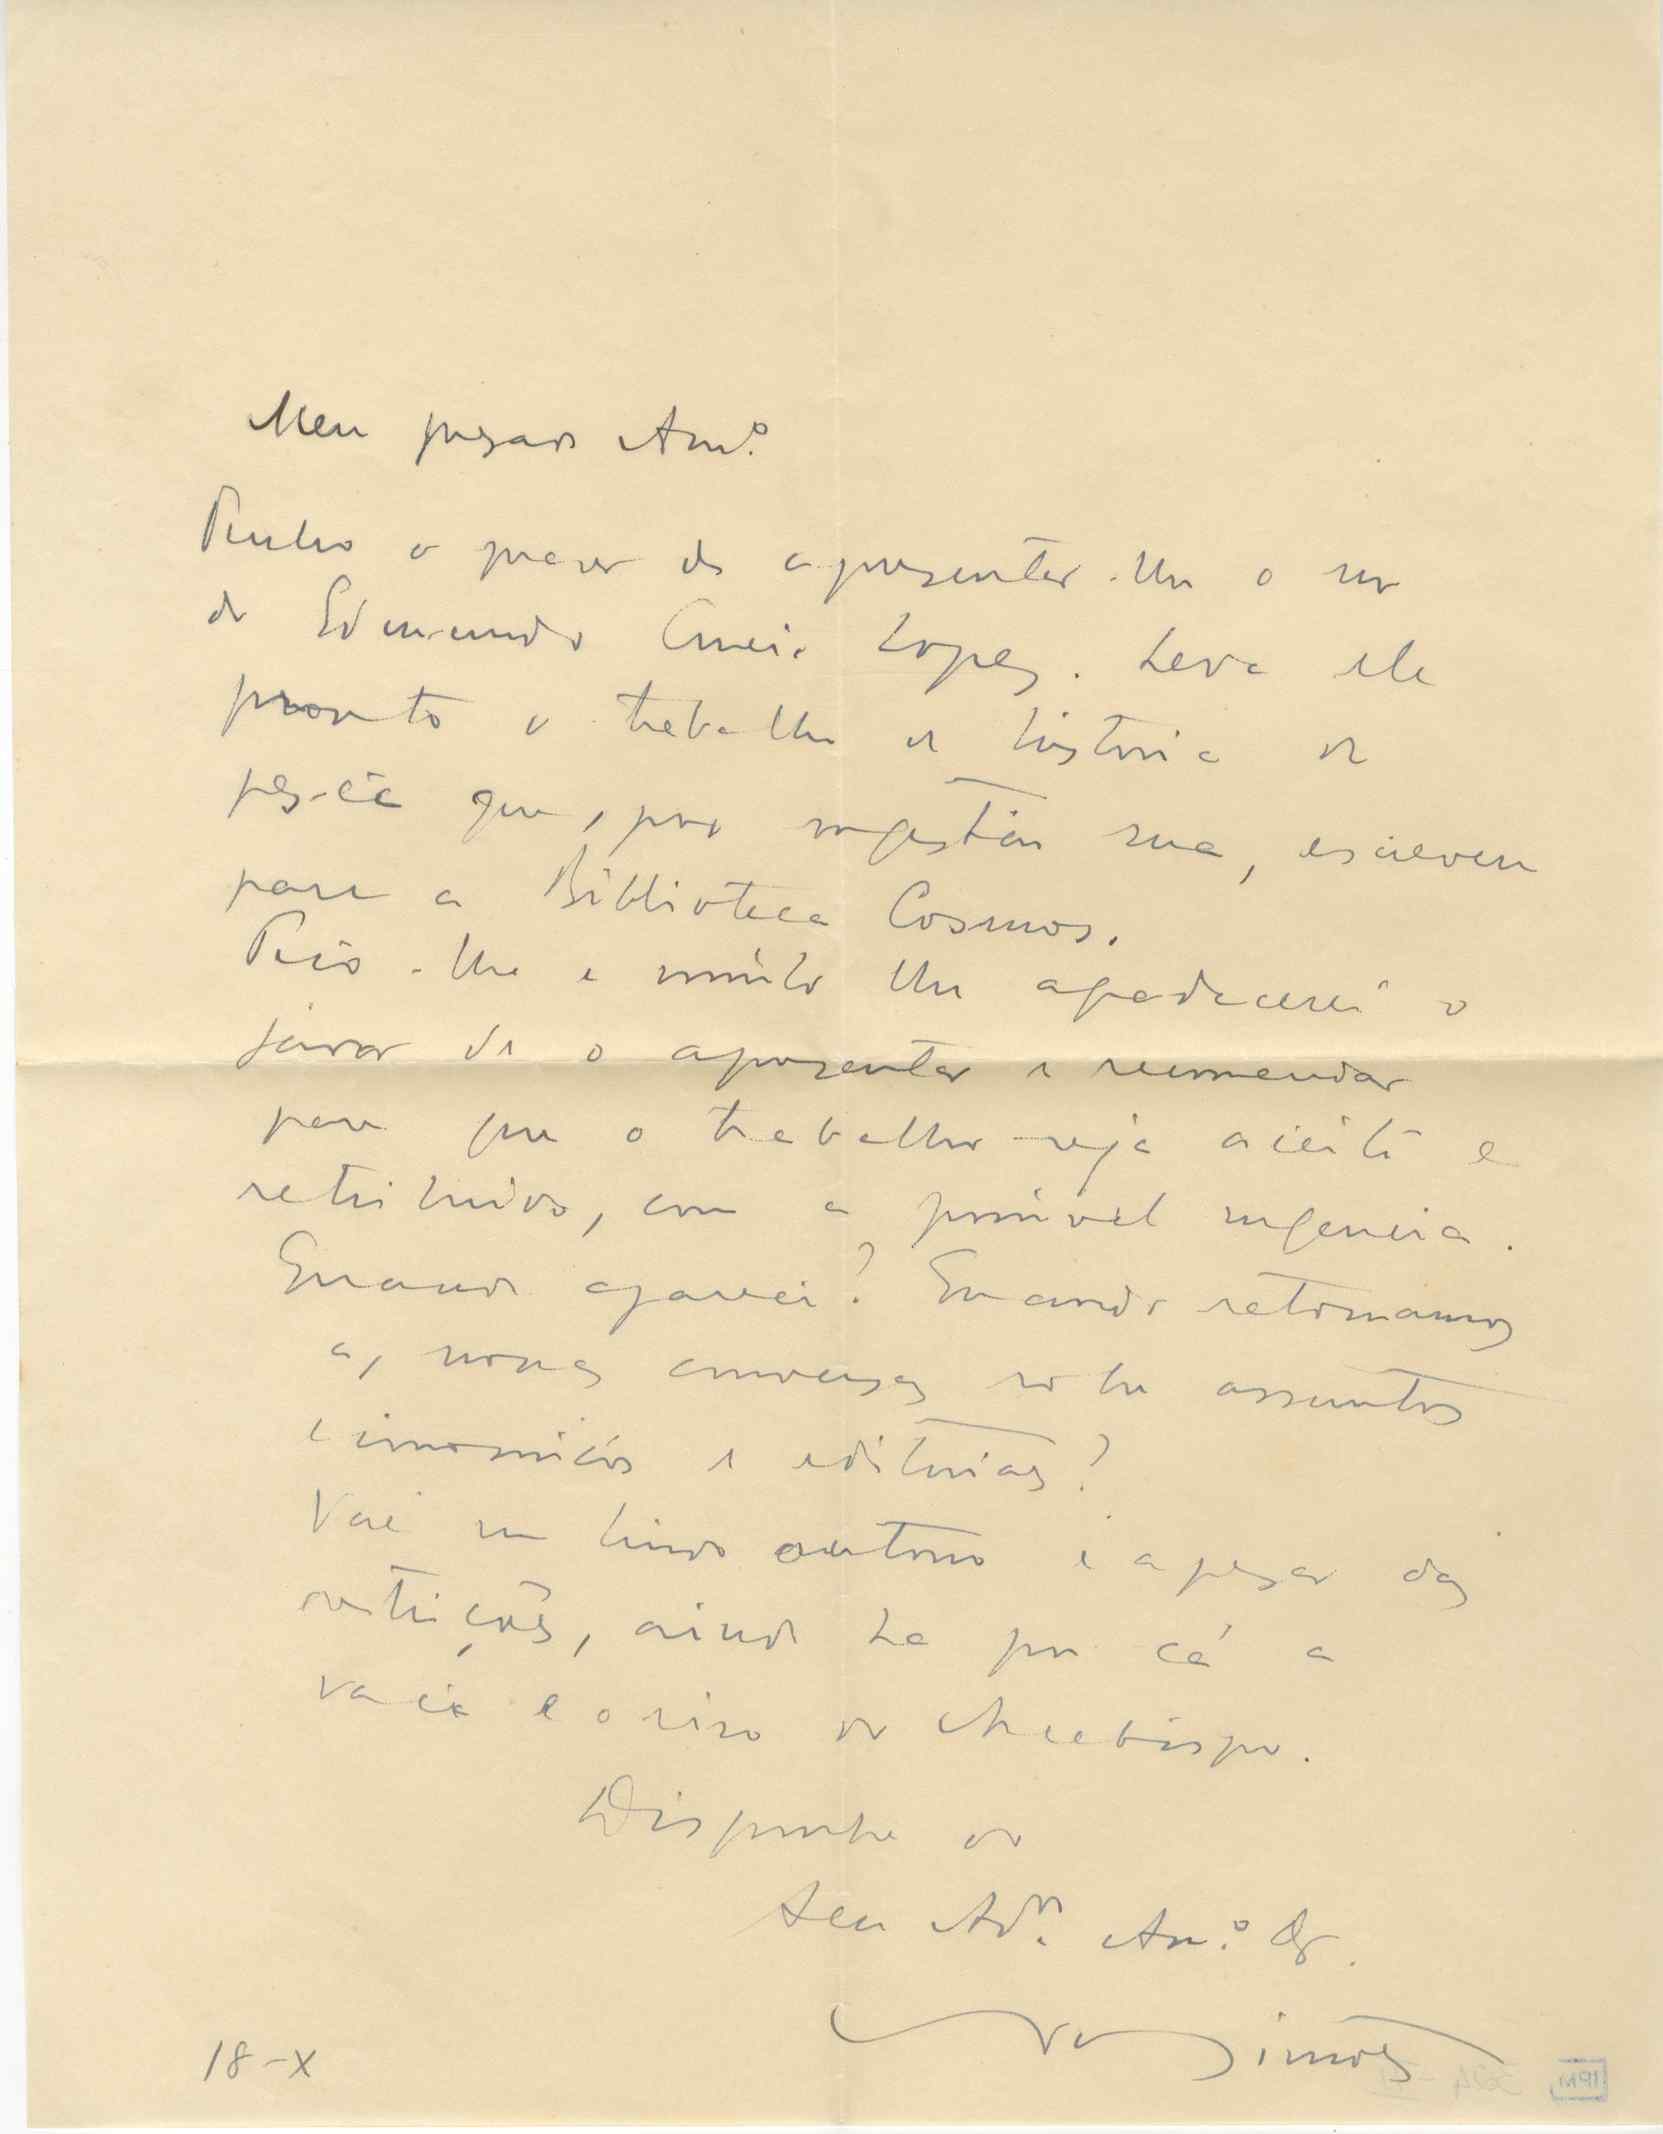 Meu prezado Am.º
Tenho o prazer de apresentar-lhe o sr
dr Edmundo Correia Lopes. Leva ele
pronto o trabalho de historia de
que, por sugestão sua, escreveu
para a Biblioteca Cosmos.
Peço-lhe e muito lhe agradecerei o
favor de o apresentar e recomendar
para que o trabalho seja aceite e
retribuido, com a possivel urgencia.
Quando aparece? Quando retomamos
as nossas conversas sobre assuntos
economicos e editoriais?
Vai um lindo outono e apesar das
restrições, ainda ha por cá a
vaca e o riso do Arcebispo.
Disponha do
Seu Ad.or Am.º
Simões
18-X
IPM